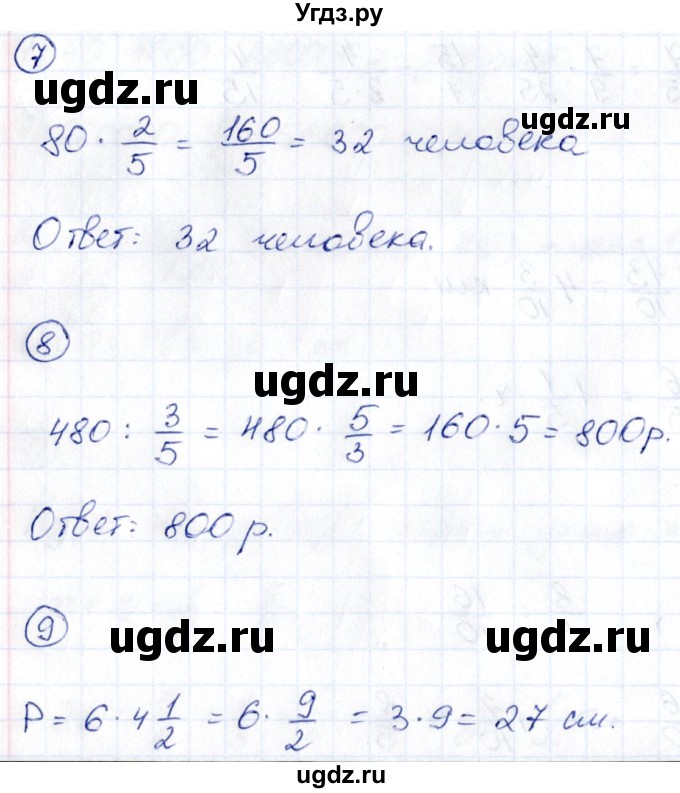 Угдз.ру
7
ugdz.ru ugdz.ru
80 · 2/5 = 160/5 = 32 человека
Ответ: 32 человека.
8
ugdz.ru
480 : 3/5 = 480 · 5/3 = 160 · 5 = 800 р.
Ответ: 800 р.
9
ugdz.ru ugdz.ru
P = 6 · 4 1/2 = 6 · 9/2 = 3 · 9 = 27 см.
ugdz.ru